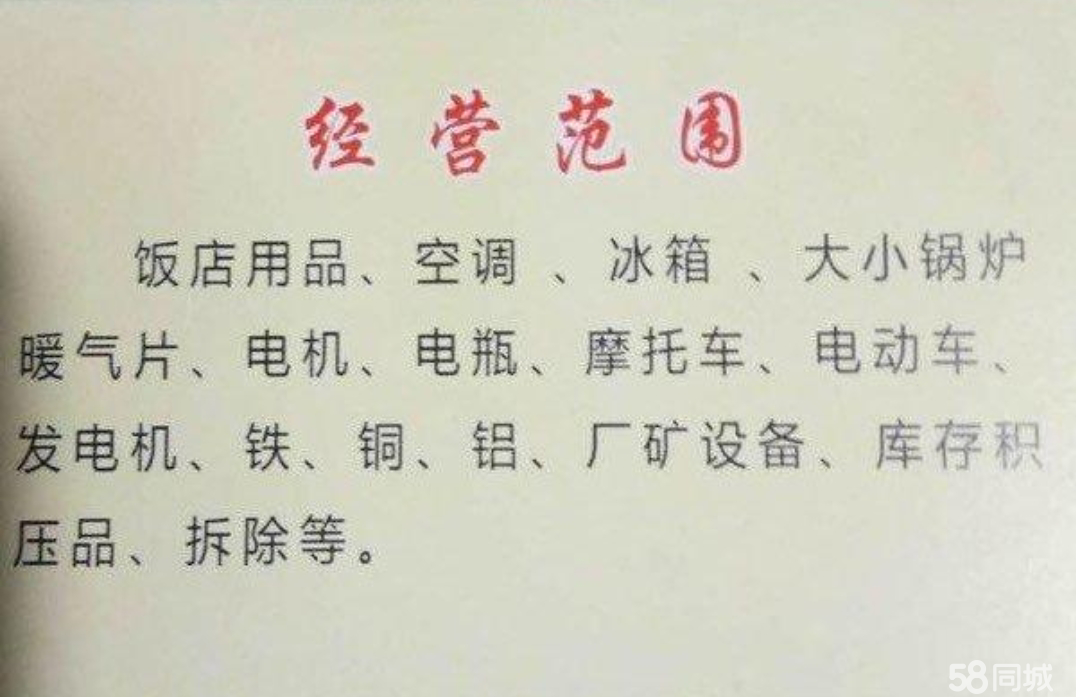 经营范围
饭店用品、空调 、冰箱 、大小锅炉
暖气片、电机、电瓶、摩托车、电动车、
发电机、铁、铜、铝、厂矿设备、库存积
压品、拆除等。
58同城